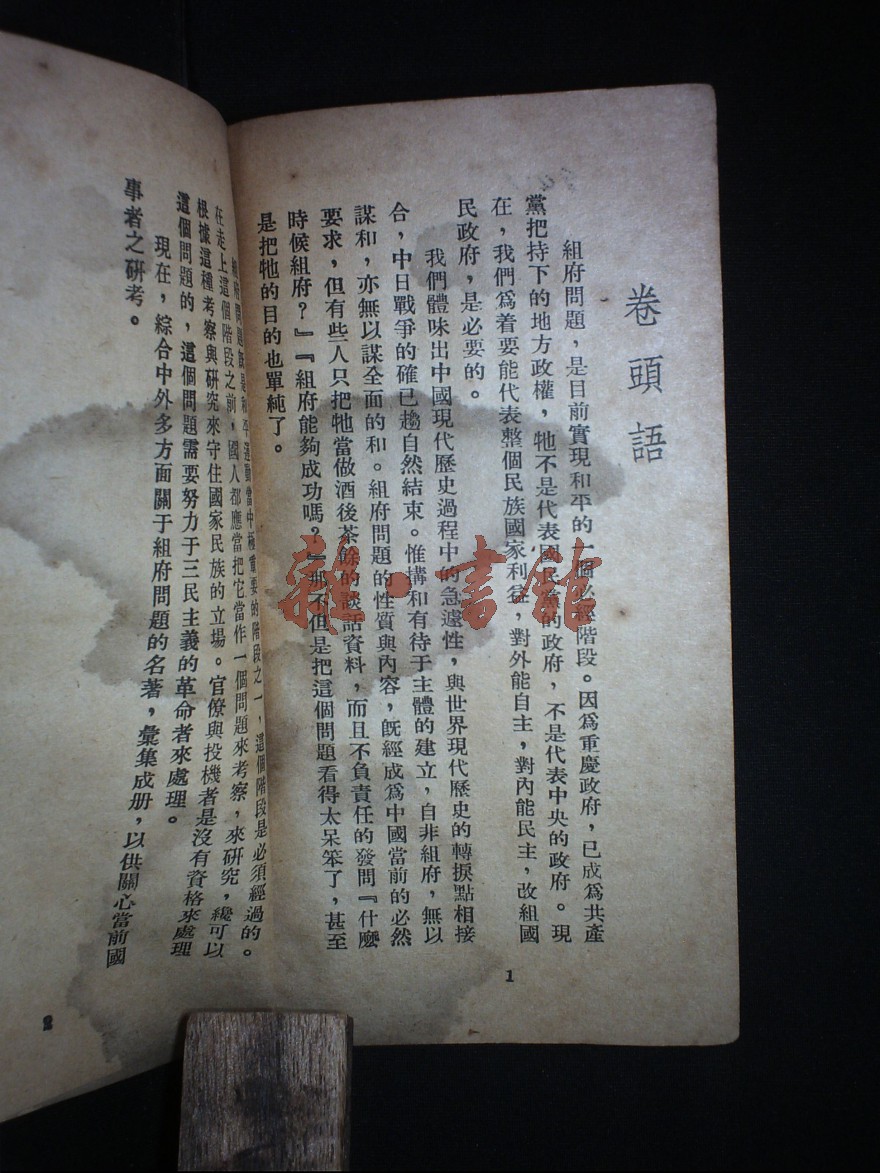 卷頭語
組府問題，是目前實現和平的一個必經階段。因爲重慶政府，已成爲共產
黨把持下的地方政權，牠不是代表國民黨的政府，不是代表中央的政府。現
在，我們爲着要能代表整個民族國家利益，對外能自主，對內能民主，改組國
民政府，是必要的。
我們體味出中國現代歷史過程中的急遽性，與世界現代歷史的轉捩點相接
合，中日戰爭的確已趨自然結束。惟搆和有待于主體的建立，自非組府，無以
謀和，亦無以謀全面的和。組府問題的性質與內容，既經成爲中國當前的必然
要求，但有些人只把牠當做酒後茶餘的談話資料，而且不負責任的發問『什麼
時候組府？』『組府能夠成功嗎？』那不但是把這個問題看得太呆笨了，甚至
是把牠的目的也單純了。
1
組府問題既是和平運動當中極重要的階段之一，這個階段是必須經過的。
在走上這個階段之前，國人都應當把它當作一個問題來考察，來研究，纔可以
根據這種考察與研究來守住國家民族的立場。官僚與投機者是沒有資格來處理
這個問題的，這個問題需要努力于三民主義的革命者來處理。
現在，綜合中外多方面關于組府問題的名著，彙集成册，以供關心當前國
事者之研考。
2
雜·書館